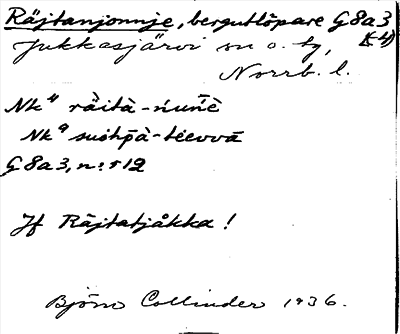 Räjtanjonnje, bergutlöpare G8a3
Jukkasjärvi sn o. tg,
Norrb. l.
Nk⁴ räitā-ńuńē
Nk⁹ suohpā-tēevvā
G8a3, n:r 12
Jf Räjtatjåkka !
Björn Collinder 1936.